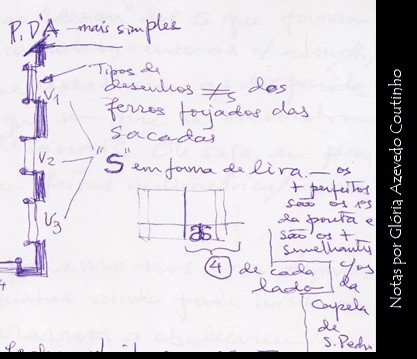 P. D'A — mais simples
Tipos de
desenhos ≠s dos
ferros forjados das
sacadas
V1
V2
V3
"S" em forma de lira. — os
+ perfeitos
são os 1os
da porta e
são os +
semelhantes
c/os
4 de cada
lado
da
Capela
de
S. Pedro
Notas por Glória Azevedo Coutinho